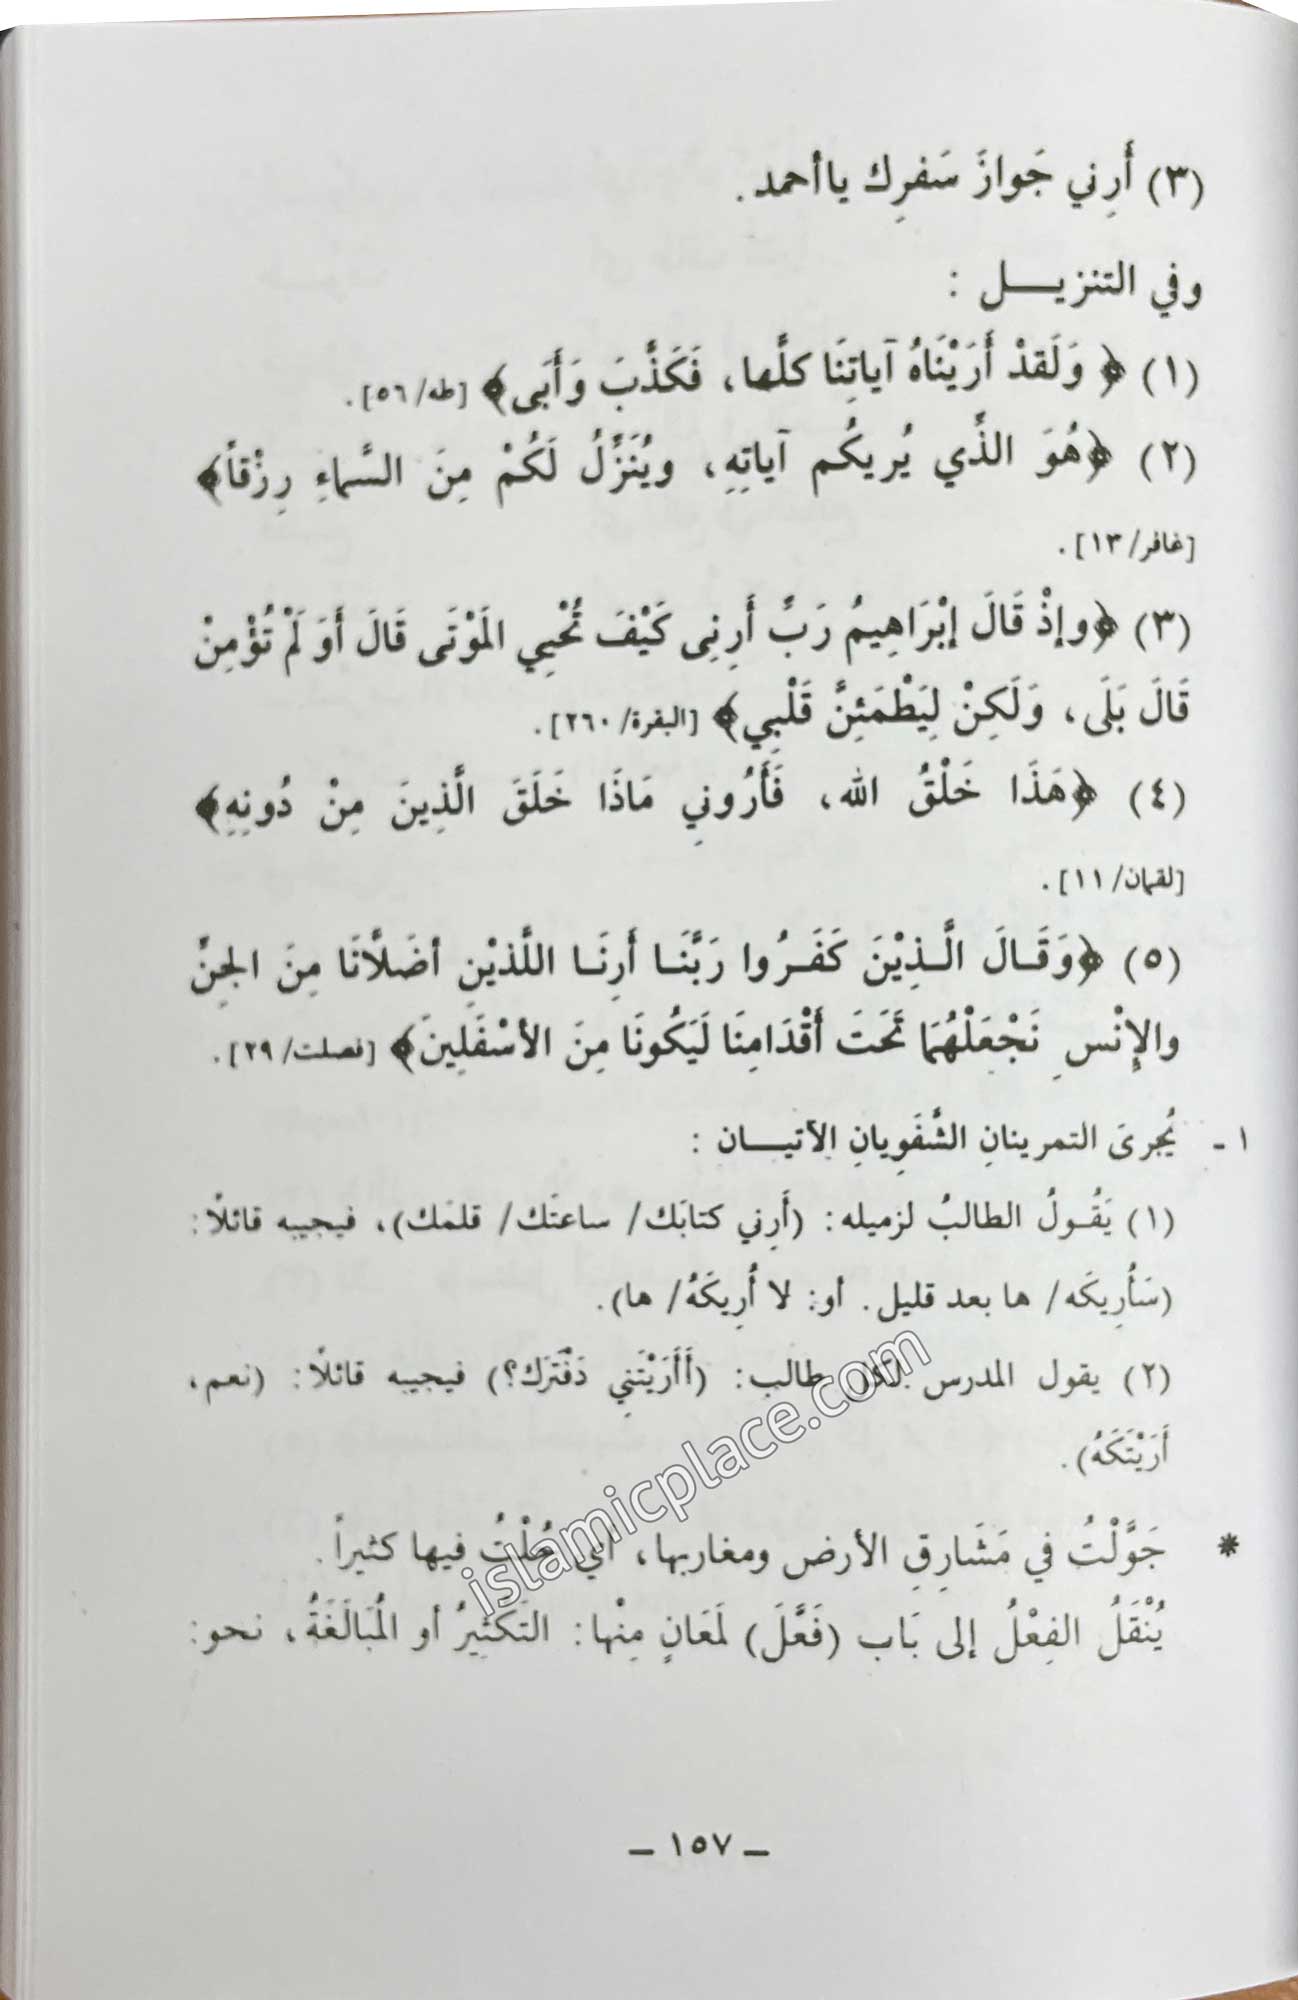 (٣) أَرِني جَوازَ سَفرِك ياأحمد .
وفي التنزيـــل :
(١) ﴿ وَلَقدْ أَرَيْنَاهُ آياتِنَا كلَّها، فَكَذَّبَ وَأَبَى﴾ [طه/ ٥٦] .
(٢) ﴿هُوَ الذَّي يُريكُم آياتِهِ، ويُنَزِّلُ لَكُمْ مِنَ السَّماءِ رِزْقاً﴾
[غافر/ ١٣] .
(٣) ﴿وإذْ قَالَ إبْرَاهِيمُ رَبِّ أَرِنِى كَيْفَ تُحْيِي المَوْتَى قَالَ أَوَ لَمْ تُؤْمِنْ
قَالَ بَلَى، وَلَكِنْ لِيَطْمَئِنَّ قَلْبِي﴾ [البقرة/ ٢٦٠] .
(٤) ﴿هَذَا خَلْقُ الله، فَأَرُوني مَاذَا خَلَقَ الَّذِينَ مِنْ دُونِهِ﴾
[لقمان/ ١١] .
(٥) ﴿وَقَـالَ الَّـذِيْنَ كَفَـرُوا رَبَّنَـا أَرِنَـا اللَّذيْنِ أضَلاَّنَا مِنَ الجِنِّ
والإِنْسِ نَجْعَلْهُمَا تَحَتَ أَقْدَامِنَا لَيَكُونَا مِنَ الأسْفَلِينَ﴾ [فصلت/ ٢٩] .
١ - يُجرىَ التمرينانِ الشَّفَوِيانِ الآتيـــان :
(١) يَقُـولُ الطالبُ لزميله: (أَرِني كتابَك/ ساعتَك/ قلمَك)، فيجيبه قائلًا:
(سَأُرِيكَه/ ها بعد قليل. أو: لا أُرِيكَهُ/ ها).
(٢) يقول المدرس لكل طالب: (أَأَرَيْتَنِي دَفْتَرَك؟) فيجيبه قائلًا: (نعم،
أَرَيْتَكَهُ).
* جَوَّلْتُ في مَشَارِقِ الأرض ومغاربها، أي جُلْتُ فيها كثيراً .
يُنْقَلُ الفِعْلُ إلى بَاب (فَعَّلَ) لَمَعَانٍ مِنْها: التَكْثِيرُ أو المُبَالَغَةُ، نحو:
islamicplace.com
– ١٥٧ –